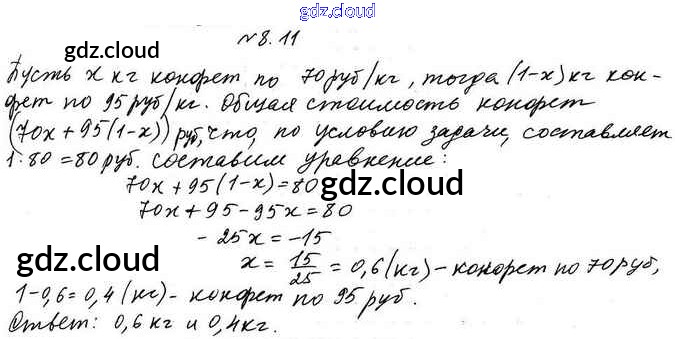 gdz.cloud
№8.11
gdz.cloud
gdz.cloud
Пусть x кг конфет по 70 руб/кг, тогда (1-x) кг кон-
фет по 95 руб/кг. Общая стоимость конфет
(70x + 95(1-x)) руб, что, по условию задачи, составляет
1·80 = 80 руб. Составим уравнение:
70x + 95(1-x) = 80
gdz.cloud
70x + 95 - 95x = 80
- 25x = -15
gdz.cloud
x = 15/25 = 0,6 (кг) - конфет по 70 руб,
1-0,6 = 0,4 (кг) - конфет по 95 руб.
gdz.cloud
Ответ: 0,6 кг и 0,4 кг.